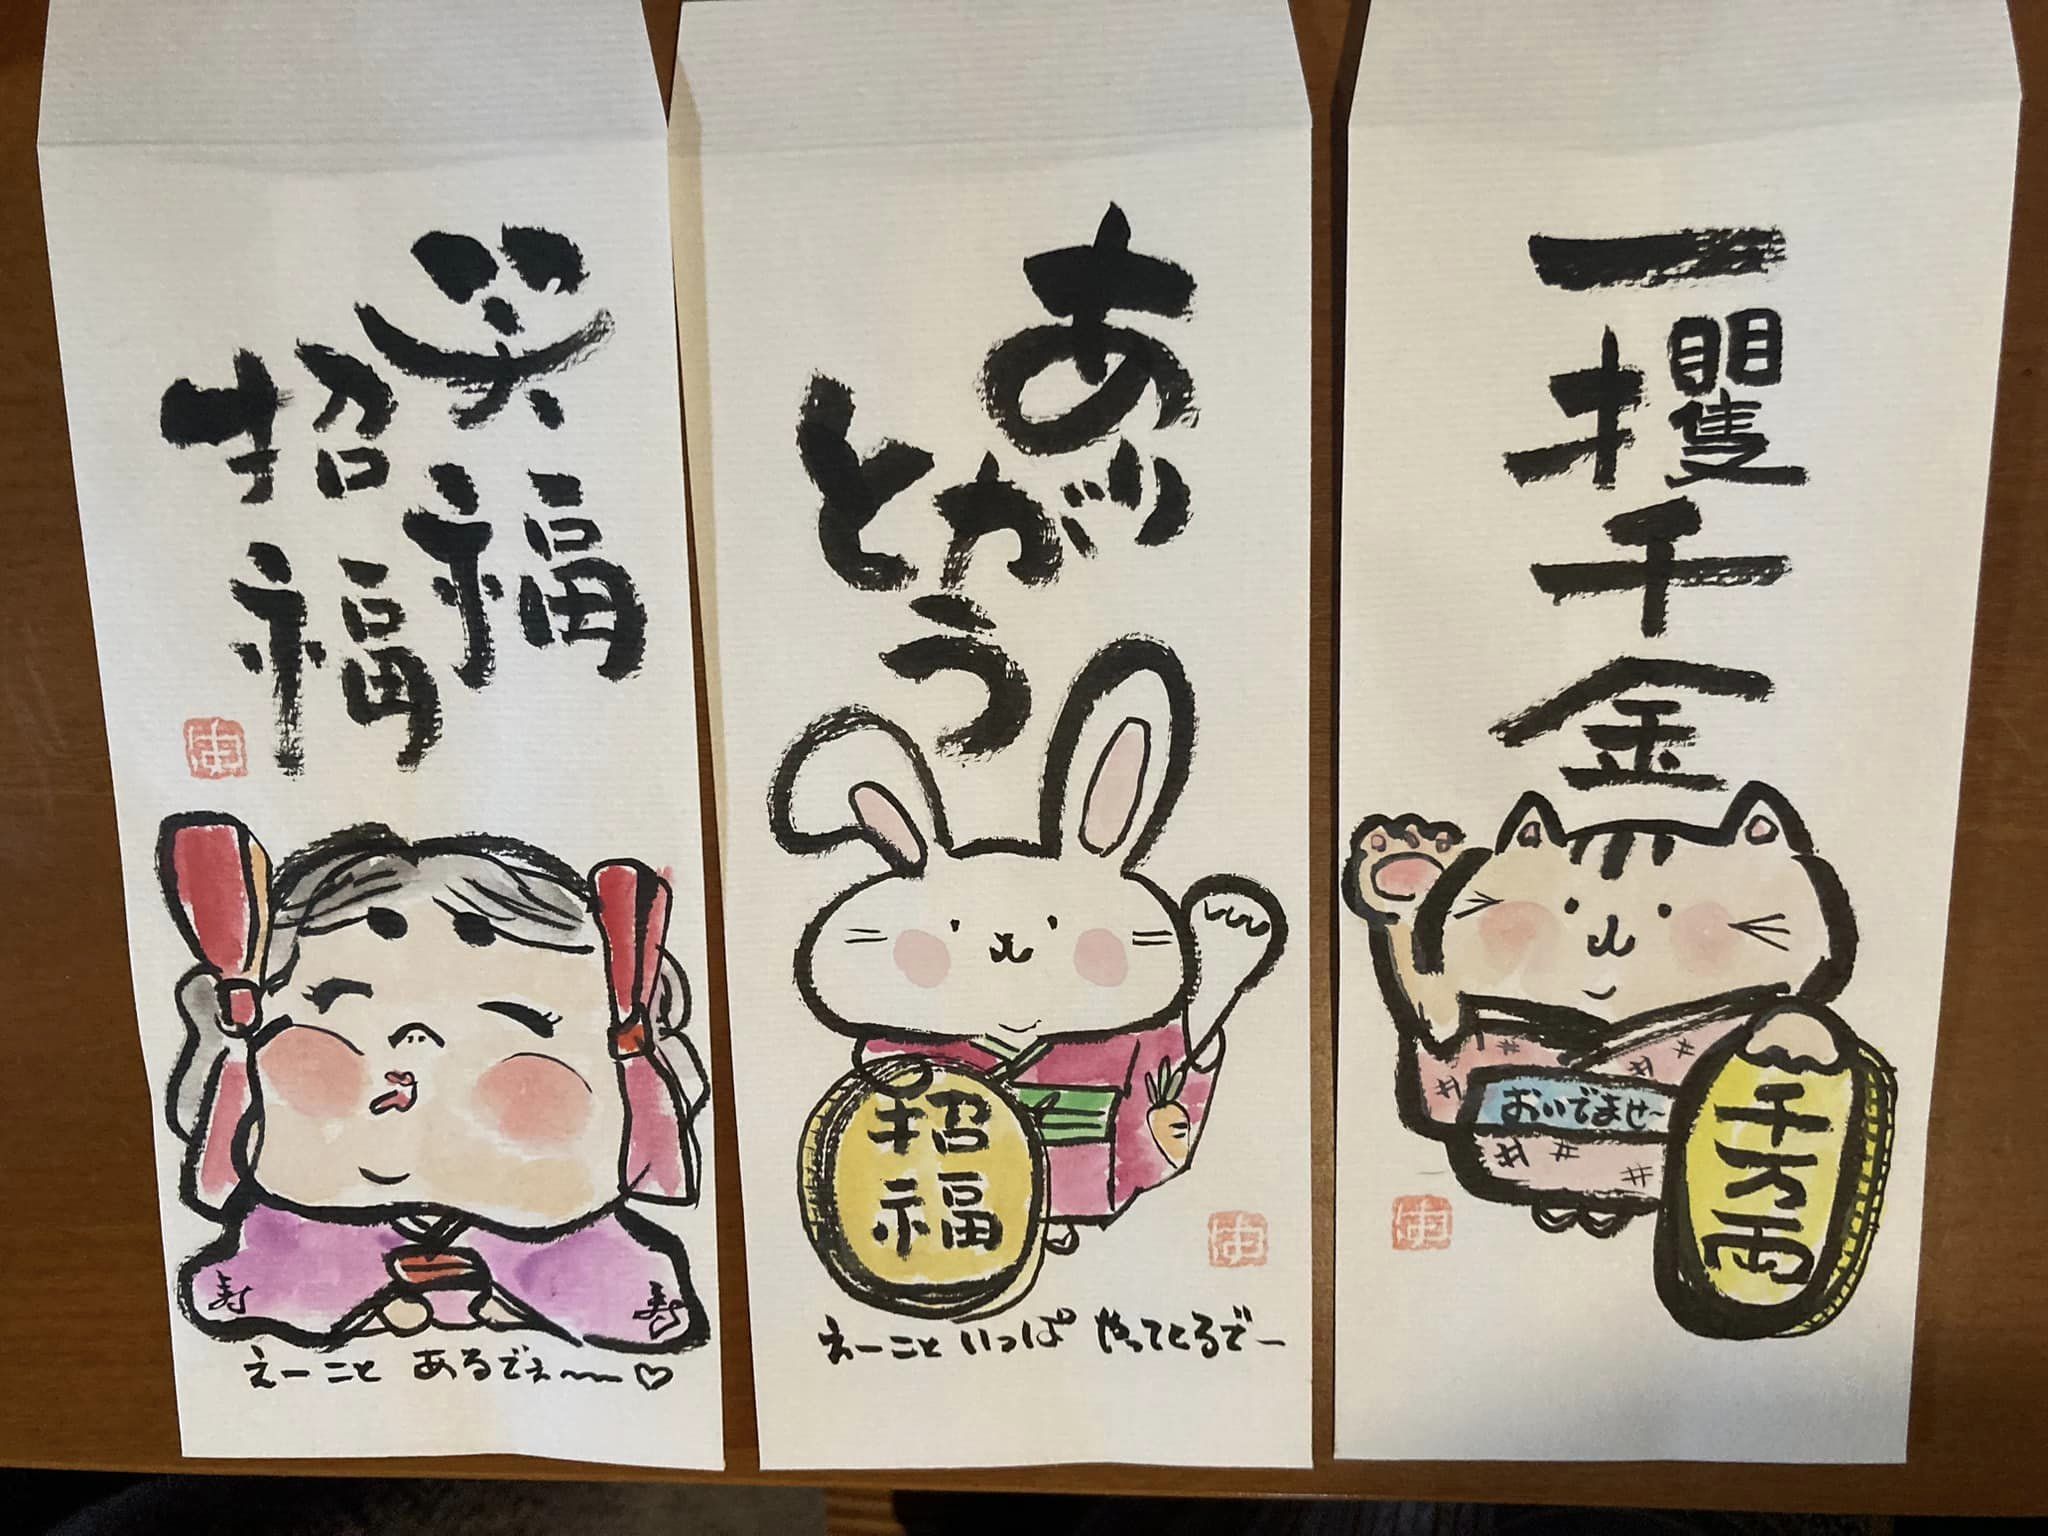 笑福
招福
寿
寿
えーこと あるでぇ〜♡
ありが
とう
招福
えーこと いっぱ やってくるでー
一攫千金
おいでませ〜
千万両